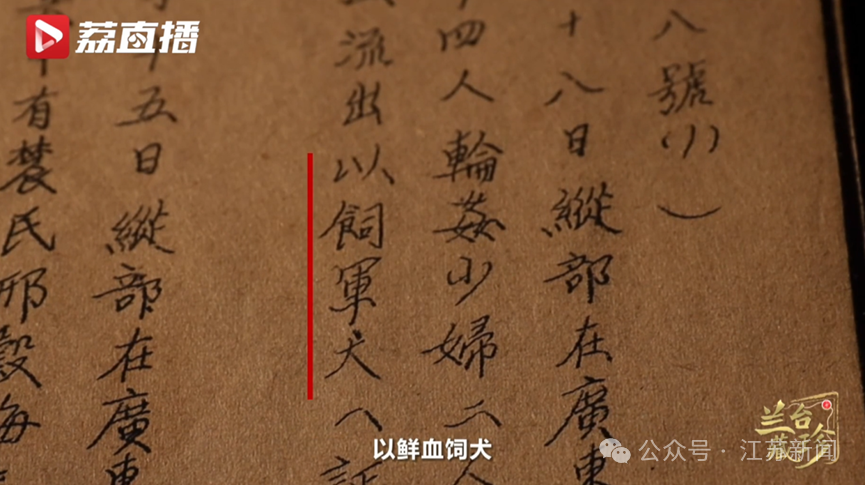 荔直播
八號
十八日縱部在廣東
四人輪姦少婦二人
流出以飼軍犬
五日縱部在廣東
有 氏邪
以鲜血饲犬
兰台
公众号 · 江苏新闻